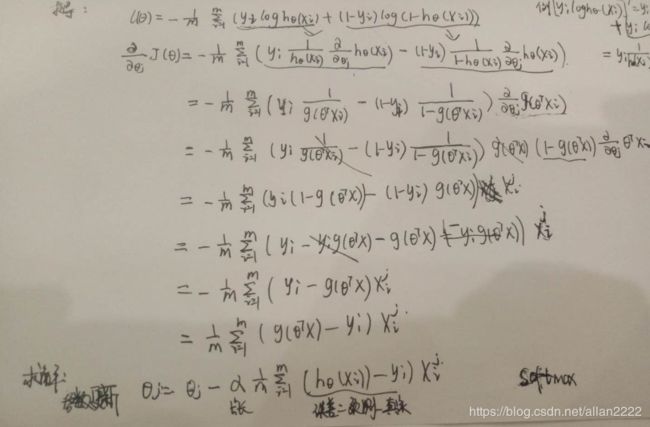 l(θ) = - 1/m Σ_{i=1}^{m} (y_i log h_θ(x_i) + (1-y_i) log (1-h_θ(x_i)))
∂/∂θ_j J(θ) = - 1/m Σ_{i=1}^{m} ( y_i 1/h_θ(x_i) ∂/∂θ_j h_θ(x_i) - (1-y_i) 1/(1-h_θ(x_i)) ∂/∂θ_j h_θ(x_i))
= - 1/m Σ_{i=1}^{m} ( y_i 1/g(θ^T x_i) - (1-y_i) 1/(1-g(θ^T x_i)) ) ∂/∂θ_j g(θ^T x_i)
= - 1/m Σ_{i=1}^{m} ( y_i 1/g(θ^T x_i) - (1-y_i) 1/(1-g(θ^T x_i)) ) g(θ^T x_i) (1-g(θ^T x_i)) ∂/∂θ_j θ^T x_i
= - 1/m Σ_{i=1}^{m} (y_i (1-g(θ^T x)) - (1-y_i) g(θ^T x)) x_i^j
= - 1/m Σ_{i=1}^{m} ( y_i - y_i g(θ^T x) - g(θ^T x) + y_i g(θ^T x)) x_i^j
= - 1/m Σ_{i=1}^{m} ( y_i - g(θ^T x) x_i^j
= 1/m Σ_{i=1}^{m} ( g(θ^T x) - y_i ) x_i^j
参数更新 θ_j = θ_j - α 1/m Σ_{i=1}^{m} (h_θ(x_i)) - y_i) x_i^j
步长 误差 = 预测 - 真实
softmax
https://blog.csdn.net/allan2222